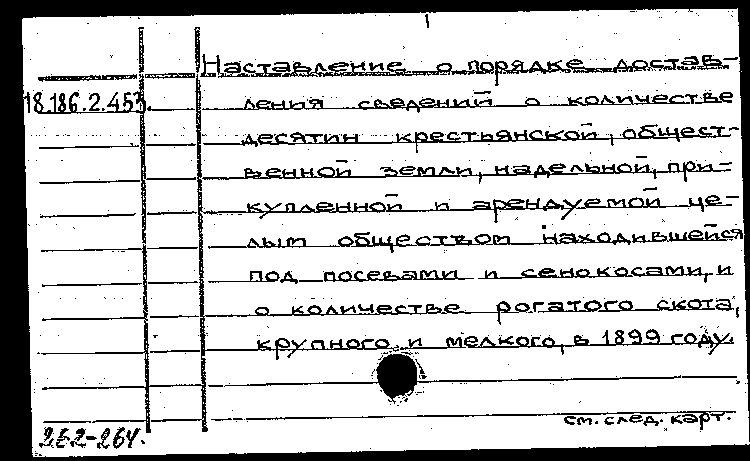 Наставление о порядке достав-
18.186.2.453. ления сведений о количестве
десятин крестьянской, общест-
венной земли, надельной, при-
купленной и арендуемой це-
лым обществом находившейся
под посевами и сенокосами, и
о количестве рогатого скота,
крупного и мелкого, в 1899 году.
см. след. карт.
262-264.